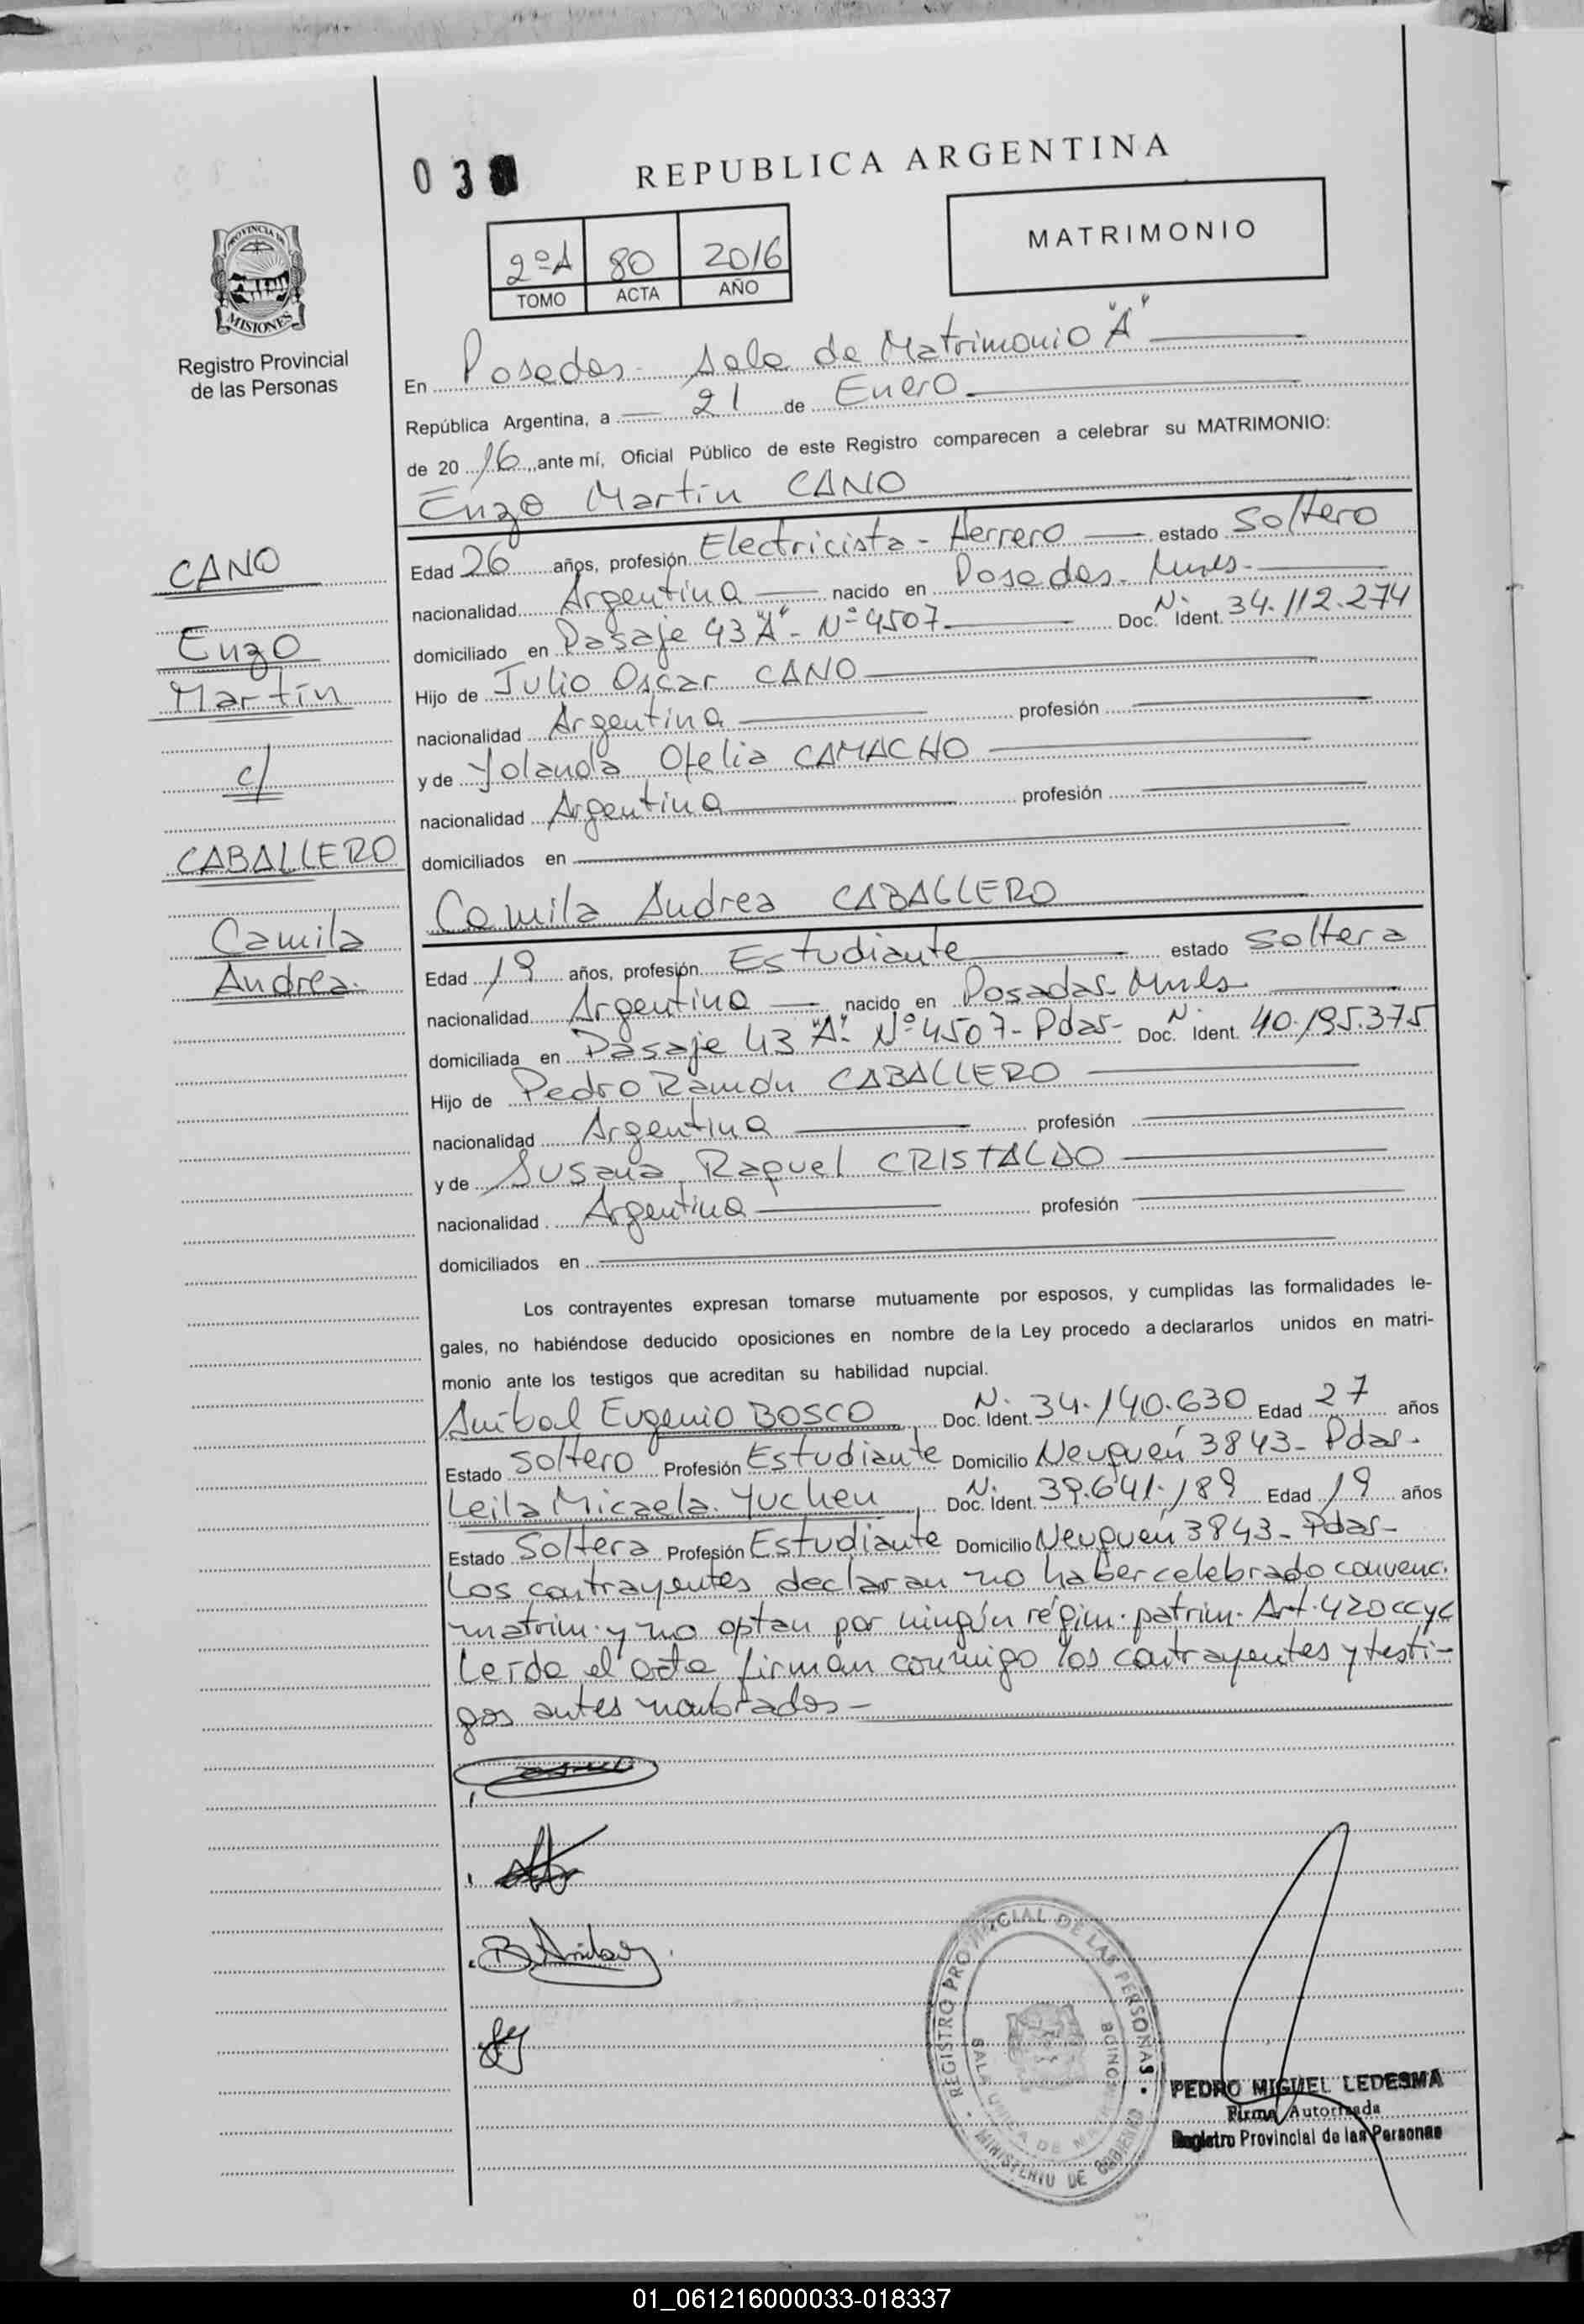 03
REPUBLICA ARGENTINA
MATRIMONIO
2ºA 80 2016
TOMO ACTA AÑO
PROVINCIA DE
MISIONES
Registro Provincial
de las Personas
En Posadas - Sala de Matrimonio "A"
República Argentina, a 21 de Enero
de 2016, ante mí, Oficial Público de este Registro comparecen a celebrar su MATRIMONIO:
Enzo Martin CANO
Edad 26 años, profesión Electricista - Herrero estado Soltero
nacionalidad Argentina nacido en Posadas - Mnes -
domiciliado en Pasaje 43 "A" - Nº 4507 Doc. N. Ident. 34.112.274
Hijo de Julio Oscar CANO
nacionalidad Argentina profesión
y de Yolanda Ofelia CAMACHO
nacionalidad Argentina profesión
domiciliados en
Camila Andrea CABALLERO
Edad 19 años, profesión Estudiante estado soltera
nacionalidad Argentina nacido en Posadas - Mnes
domiciliada en Pasaje 43 "A". Nº 4507 - Pdas - Doc. N. Ident. 40.195.375
Hijo de Pedro Ramón CABALLERO
nacionalidad Argentina profesión
y de Susana Raquel CRISTALDO
nacionalidad Argentina profesión
domiciliados en
CANO
Enzo
Martín
c/
CABALLERO
Camila
Andrea.
Los contrayentes expresan tomarse mutuamente por esposos, y cumplidas las formalidades le-
gales, no habiéndose deducido oposiciones en nombre de la Ley procedo a declararlos unidos en matri-
monio ante los testigos que acreditan su habilidad nupcial.
Aníbal Eugenio BOSCO Doc. N. Ident. 34.140.630 Edad 27 años
Estado Soltero Profesión Estudiante Domicilio Neuquén 3843 - Pdas.
Leila Micaela Yuchen Doc. N. Ident. 39.641.189 Edad 19 años
Estado Soltera Profesión Estudiante Domicilio Neuquén 3843 - Pdas -
Los contrayentes declaran no haber celebrado convenc.
matrim. y no optan por ningún régim. patrim. Art. 420 CCyC
Leída el acta firman conmigo los contrayentes y testi-
gos antes nombrados -
REGISTRO PROVINCIAL DE LAS PERSONAS
MINISTERIO DE GOBIERNO
PEDRO MIGUEL LEDESMA
Firma Autorizada
Registro Provincial de las Personas
01_061216000033-018337